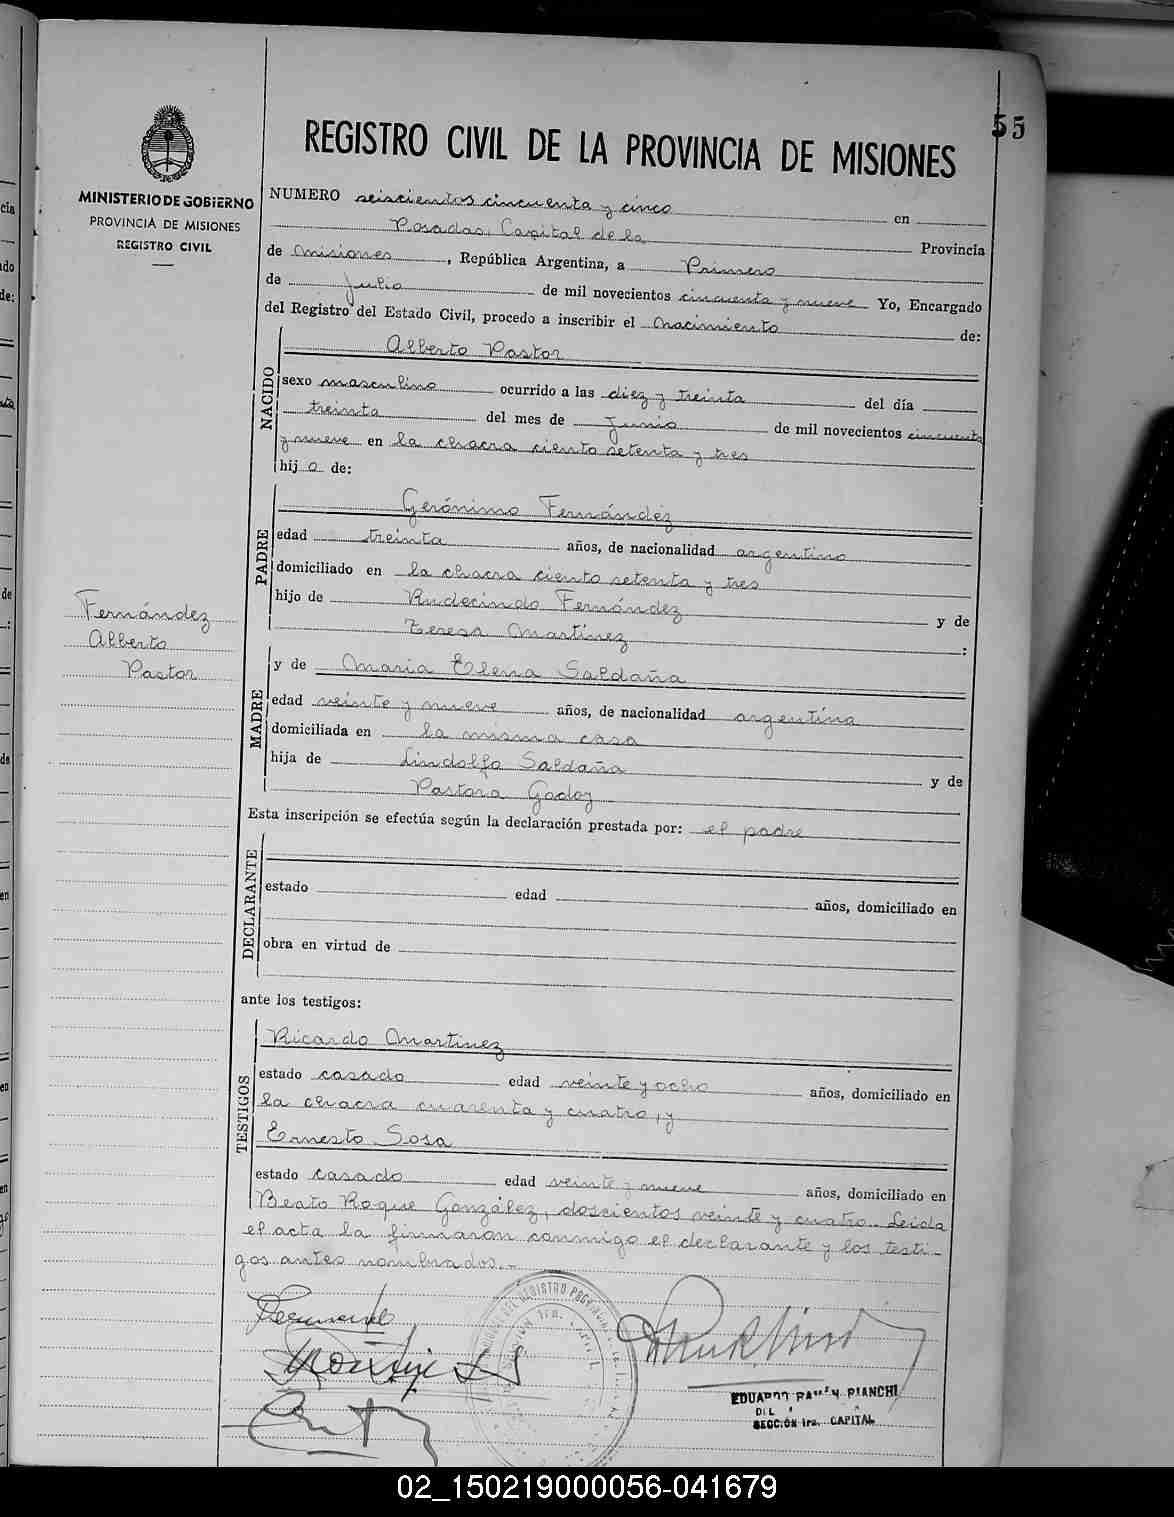 55
REGISTRO CIVIL DE LA PROVINCIA DE MISIONES
MINISTERIO DE GOBIERNO
PROVINCIA DE MISIONES
REGISTRO CIVIL
NUMERO seiscientos cincuenta y cinco en
Posadas, Capital de la Provincia
de Misiones, República Argentina, a Primero
de Julio de mil novecientos cincuenta y nueve Yo, Encargado
del Registro del Estado Civil, procedo a inscribir el nacimiento de:
NACIDO
Alberto Pastor
sexo masculino ocurrido a las diez y treinta del día
treinta del mes de Junio de mil novecientos cincuenta
y nueve en la chacra ciento setenta y tres
hijo de:
PADRE
Gerónimo Fernández
edad treinta años, de nacionalidad argentino
domiciliado en la chacra ciento setenta y tres
hijo de Rudecindo Fernández y de
Teresa Martínez :
Fernández
Alberto
Pastor
MADRE
y de Maria Elena Saldaña
edad veinte y nueve años, de nacionalidad argentina
domiciliada en la misma casa
hija de Lindolfo Saldaña y de
Pastora Godoy
Esta inscripción se efectúa según la declaración prestada por: el padre
DECLARANTE
estado edad años, domiciliado en
obra en virtud de
ante los testigos:
TESTIGOS
Ricardo Martinez
estado casado edad veinte y ocho años, domiciliado en
la chacra cuarenta y cuatro, y
Ernesto Sosa
estado casado edad veinte y nueve años, domiciliado en
Beato Roque González, doscientos veinte y cuatro. Leida
el acta la firmaron conmigo el declarante y los testi-
gos antes nombrados.-
EDUARDO RAMÓN BIANCHI
SECCIÓN 1ra. CAPITAL
02_150219000056-041679